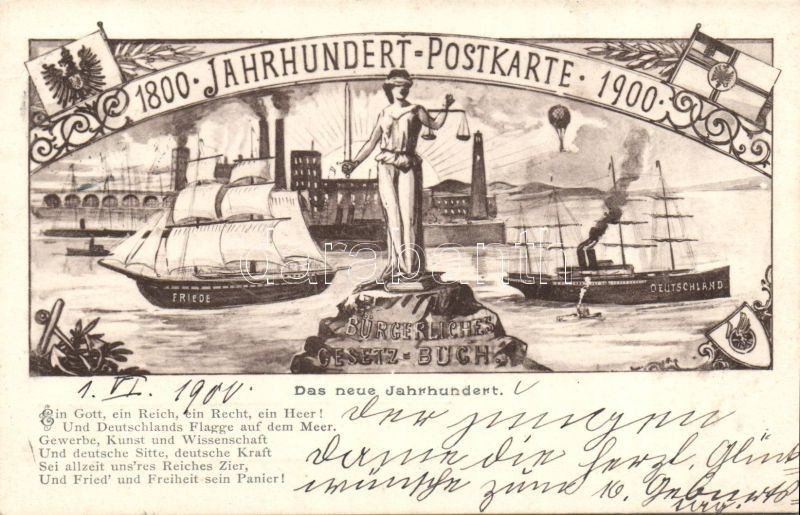 1800 · JAHRHUNDERT=POSTKARTE · 1900 ·
FRIEDE
DEUTSCHLAND
darabanth.com
BÜRGERLICHES
GESETZ=BUCH
1. VI. 1900.
Das neue Jahrhundert.
Ein Gott, ein Reich, ein Recht, ein Heer!
Und Deutschlands Flagge auf dem Meer.
Gewerbe, Kunst und Wissenschaft
Und deutsche Sitte, deutsche Kraft
Sei allzeit uns'res Reiches Zier,
Und Fried' und Freiheit sein Panier!
Der jungen
Dame die herzl. Glück-
wünsche zum 16. Geburts-
tag.